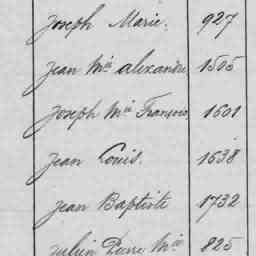 Joseph Marie. 927
Jean Mie alexandre 1505
Joseph Mie François 1601
Jean Louis. 1638
Jean Baptiste 1732
Julien Pierre Mie 825